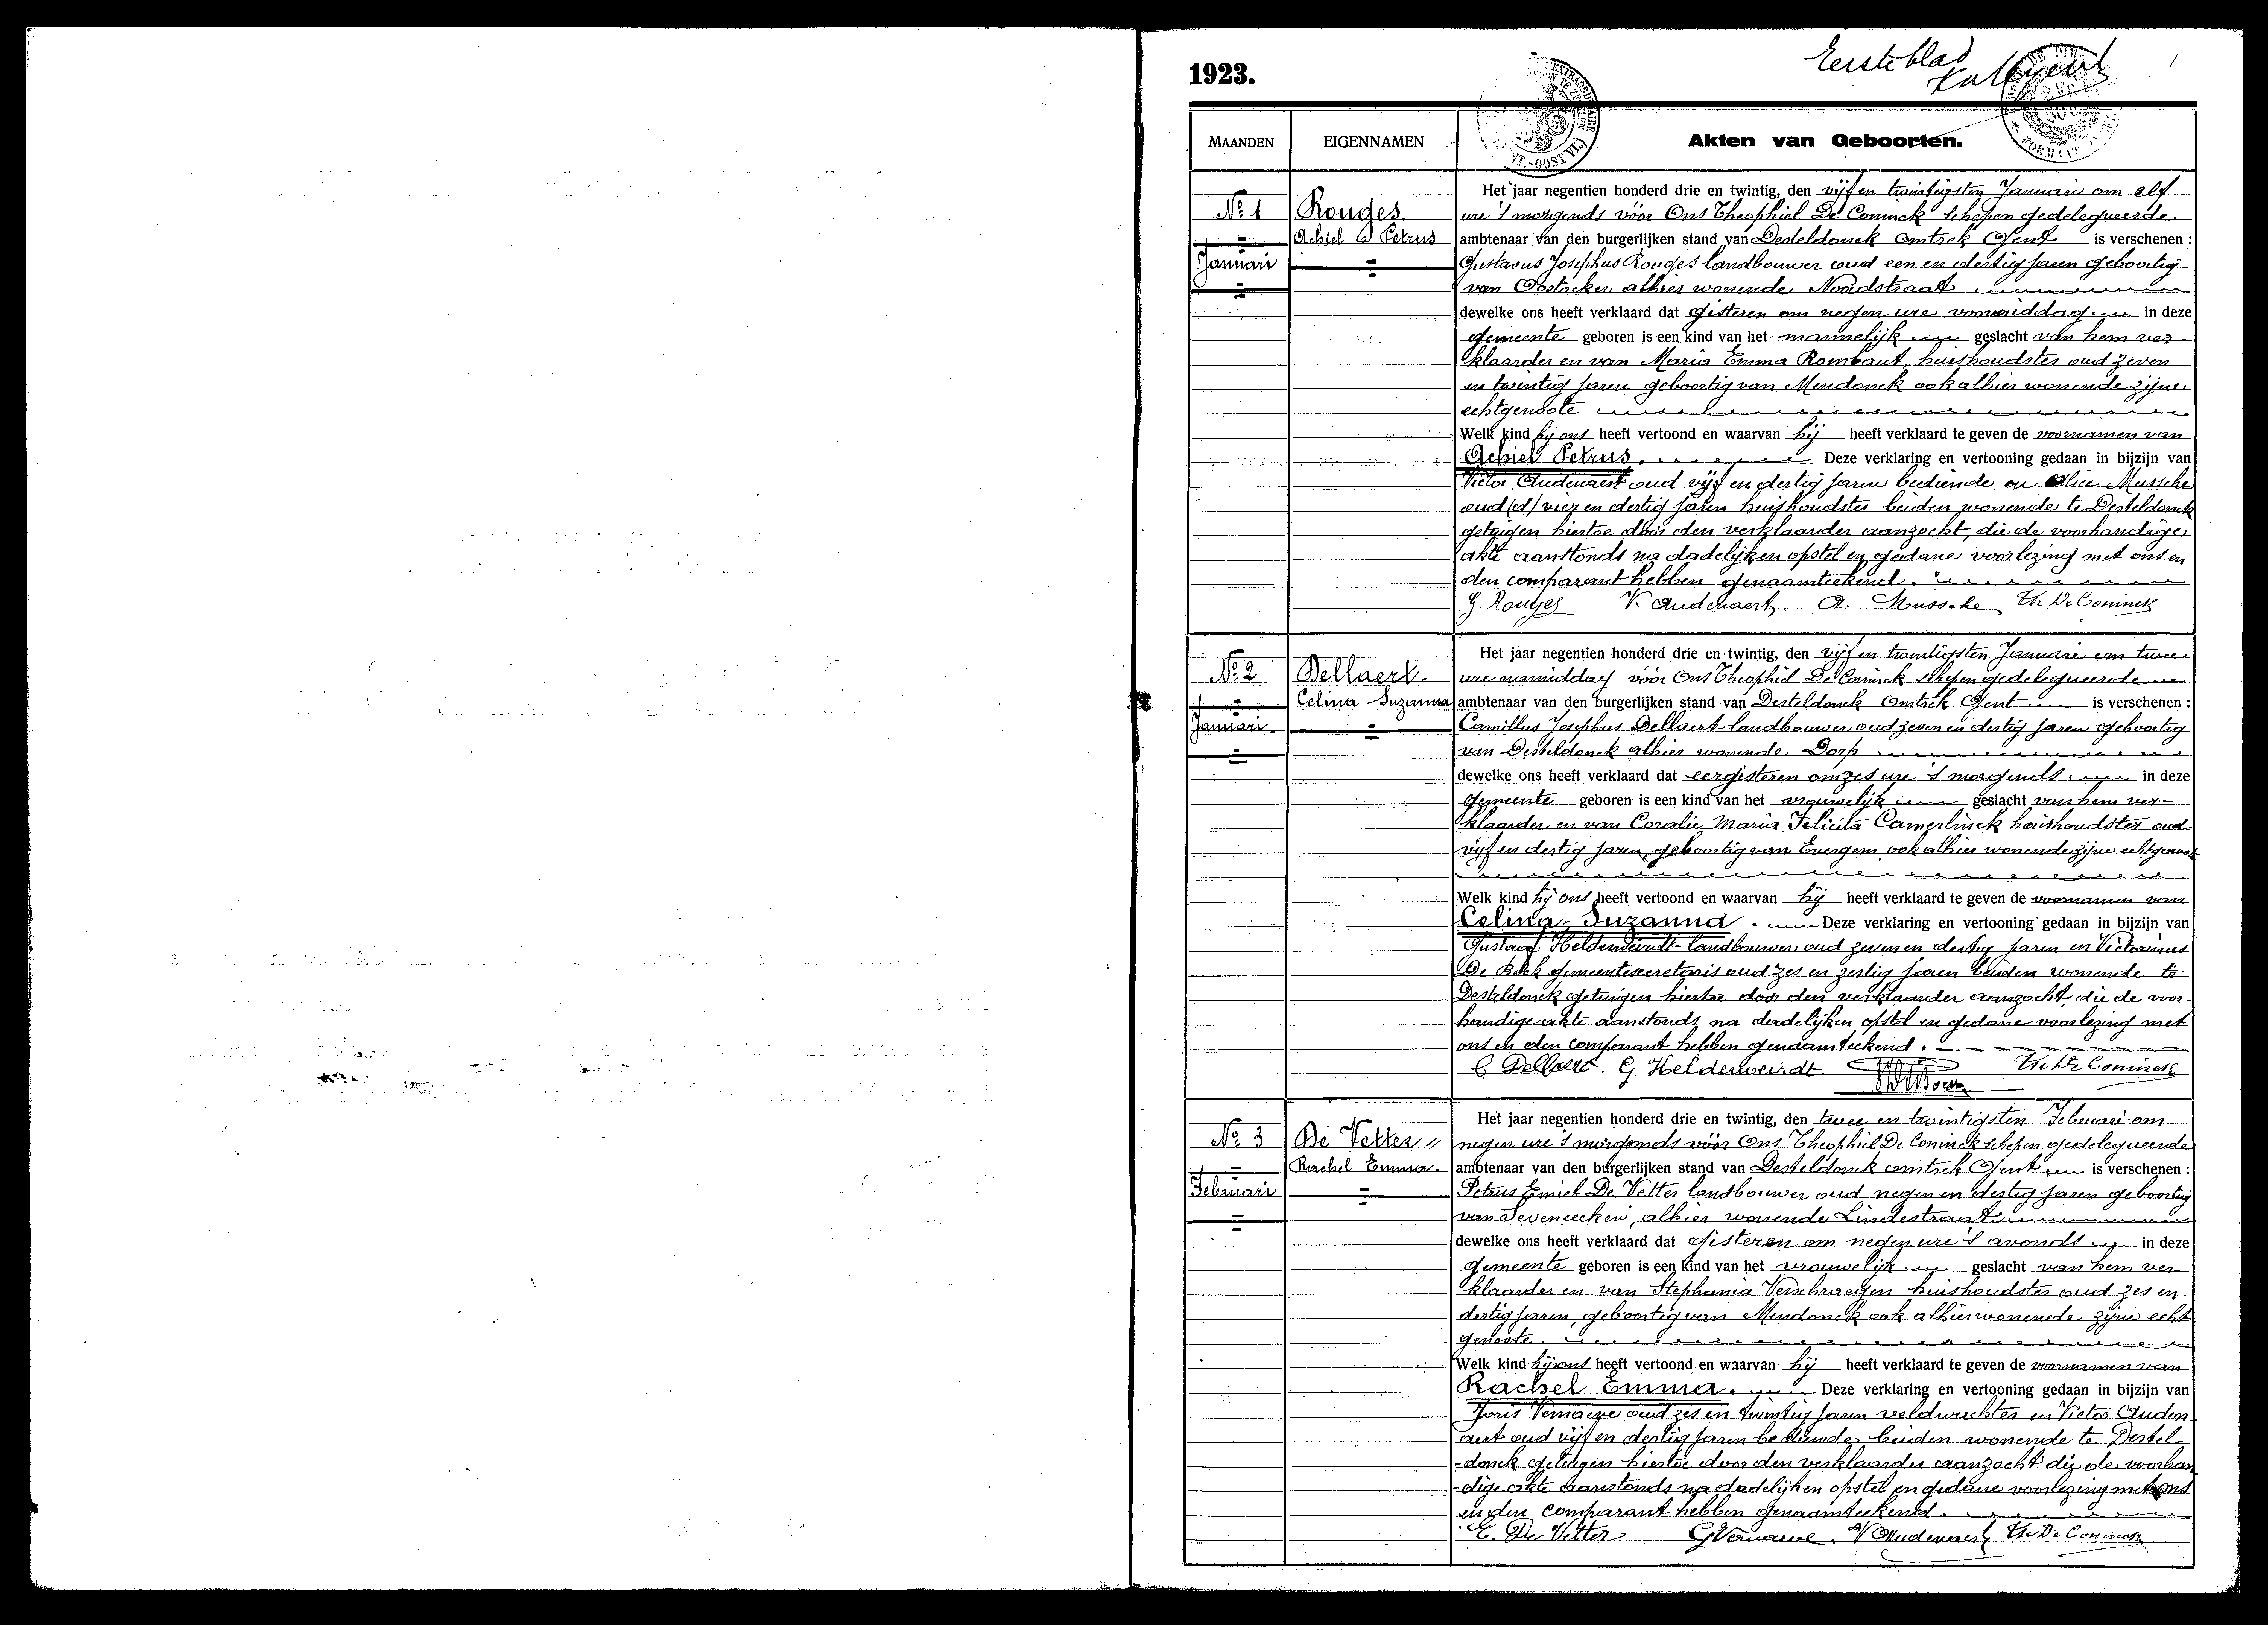 Eerste blad
1
1923.
MAANDEN EIGENNAMEN Akten van Geboorten.
Het jaar negentien honderd drie en twintig, den vijf en twintigsten Januari om elf
No 1 Rouges ure 's morgends vóór Ons Theophiel De Coninck schepen gedelegueerde
Achiel Petrus ambtenaar van den burgerlijken stand van Desteldonck omtrek Gent is verschenen :
Januari Gustavus Josephus Rouges landbouwer oud een en dertig jaren geboortig
van Oostacker alhier wonende Noordstraat
dewelke ons heeft verklaard dat gisteren om negen ure voormiddag in deze
gemeente geboren is een kind van het mannelijk geslacht van hem ver-
klaarder en van Maria Emma Rombaut, huishoudster oud zeven
en twintig jaren geboortig van Mendonck ook alhier wonende zijne
echtgenoote
Welk kind hij ons heeft vertoond en waarvan hij heeft verklaard te geven de voornamen van
Achiel Petrus. Deze verklaring en vertooning gedaan in bijzijn van
Victor Audenaert oud vijf en dertig jaren bediende en Alice Mussche
oud (d) vier en dertig jaren huishoudster beiden wonende te Desteldonck
getuigen hiertoe door den verklaarder aanzocht, die de voorhandige
akte aanstonds na dadelijken opstel en gedane voorlezing met ons en
den comparant hebben genaamteekend.
G. Rouges V. Audenaert A. Mussche Th De Coninck
Het jaar negentien honderd drie en twintig, den vijf en twintigsten Januari om twee
No 2 Dellaert ure namiddag vóór Ons Theophiel De Coninck schepen gedelegueerde
Celina Suzanna ambtenaar van den burgerlijken stand van Desteldonck omtrek Gent is verschenen :
Januari. Camillus Josephus Dellaert landbouwer oud zeven en dertig jaren geboortig
van Desteldonck alhier wonende Dorp
dewelke ons heeft verklaard dat eergisteren om zes ure 's morgends in deze
gemeente geboren is een kind van het vrouwelijk geslacht van hem ver-
klaarder en van Coralie Maria Felicita Camerlinck huishoudster oud
vijf en dertig jaren, geboortig van Evergem ook alhier wonende zijne echtgenoote
Welk kind hij ons heeft vertoond en waarvan hij heeft verklaard te geven de voornamen van
Celina Suzanna. Deze verklaring en vertooning gedaan in bijzijn van
Gustaaf Helderweirdt landbouwer oud zeven en dertig jaren en Victorinus
De gemeentesecretaris oud zes en zestig jaren beiden wonende te
Desteldonck getuigen hiertoe door den verklaarder aanzocht, die de voor
handige akte aanstonds na dadelijken opstel en gedane voorlezing met
ons en den comparant hebben genaamteekend.
C Dellaert. G. Helderweirdt Th De Coninck
Het jaar negentien honderd drie en twintig, den twee en twintigsten Februari om
No 3 De Vetter negen ure 's morgends vóór Ons Theophiel De Coninck schepen gedelegueerde
Rachel Emma. ambtenaar van den burgerlijken stand van Desteldonck omtrek Gent is verschenen :
Februari Petrus Emiel De Vetter landbouwer oud negen en dertig jaren geboortig
van Seveneecken, alhier wonende Lindestraat
dewelke ons heeft verklaard dat gisteren om negen ure 's avonds in deze
gemeente geboren is een kind van het vrouwelijk geslacht van hem ver
klaarder en van Stephania Verschraegen huishoudster oud zes en
dertig jaren, geboortig van Mendonck ook alhier wonende zijne echt
genoote
Welk kind hij ons heeft vertoond en waarvan hij heeft verklaard te geven de voornamen van
Rachel Emma. Deze verklaring en vertooning gedaan in bijzijn van
Joris Vernaeve oud zes en twintig jaren veldwachter en Victor Auden
aert oud vijf en dertig jaren bediende, beiden wonende te Destel-
-donck getuigen hiertoe door den verklaarder aanzocht die de voorhan
-dige akte aanstonds na dadelijken opstel en gedane voorlezing met ons
en den comparant hebben genaamteekend.
E. De Vetter G Vernaeve. V Audenaert Th De Coninck